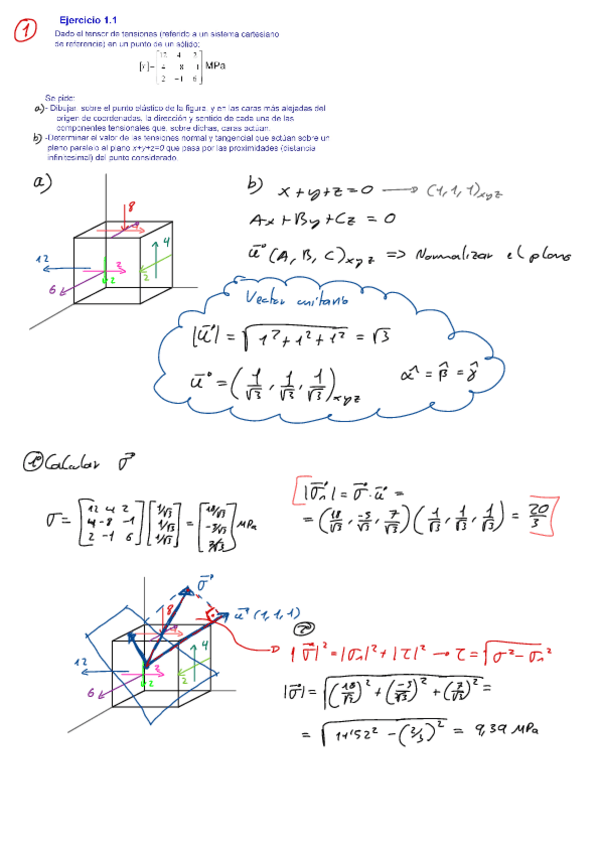 1
Ejercicio 1.1
Dado el tensor de tensiones (referido a un sistema cartesiano
de referencia) en un punto de un sólido:
12 4 2
[τ]= 4 -8 -1 MPa
2 -1 6
Se pide:
a)- Dibujar, sobre el punto elástico de la figura, y en las caras más alejadas del
origen de coordenadas, la dirección y sentido de cada una de las
componentes tensionales que, sobre dichas, caras actúan.
b)-Determinar el valor de las tensiones normal y tangencial que actúan sobre un
plano paralelo al plano x+y+z=0 que pasa por las proximidades (distancia
infinitesimal) del punto considerado.
a)
8
4
12
2
2
2
6
b) x+y+z=0 → (1,1,1)xyz
Ax+By+Cz = 0
u⃗(A,B,C)xyz => Normalizar el plano
Vector unitario
|u⃗| = √(1²+1²+1²) = √3
u⃗ = (1/√3, 1/√3, 1/√3)xyz α̂ = β̂ = γ̂
1º Calcular σ⃗
σ = [12 4 2; 4 -8 -1; 2 -1 6] [1/√3; 1/√3; 1/√3] = [18/√3; -5/√3; 7/√3] MPa
|σ⃗n| = σ⃗·u⃗ =
= (18/√3, -5/√3, 7/√3)(1/√3, 1/√3, 1/√3) = 20/3
σ⃗
8
u⃗ (1,1,1)
4
12
2
2
2
6
2º
|σ⃗|² = |σn|² + |τ|² → τ = √(σ² - σn²)
|σ⃗| = √((18/√3)² + (-5/√3)² + (7/√3)²) =
= 9,39 MPa